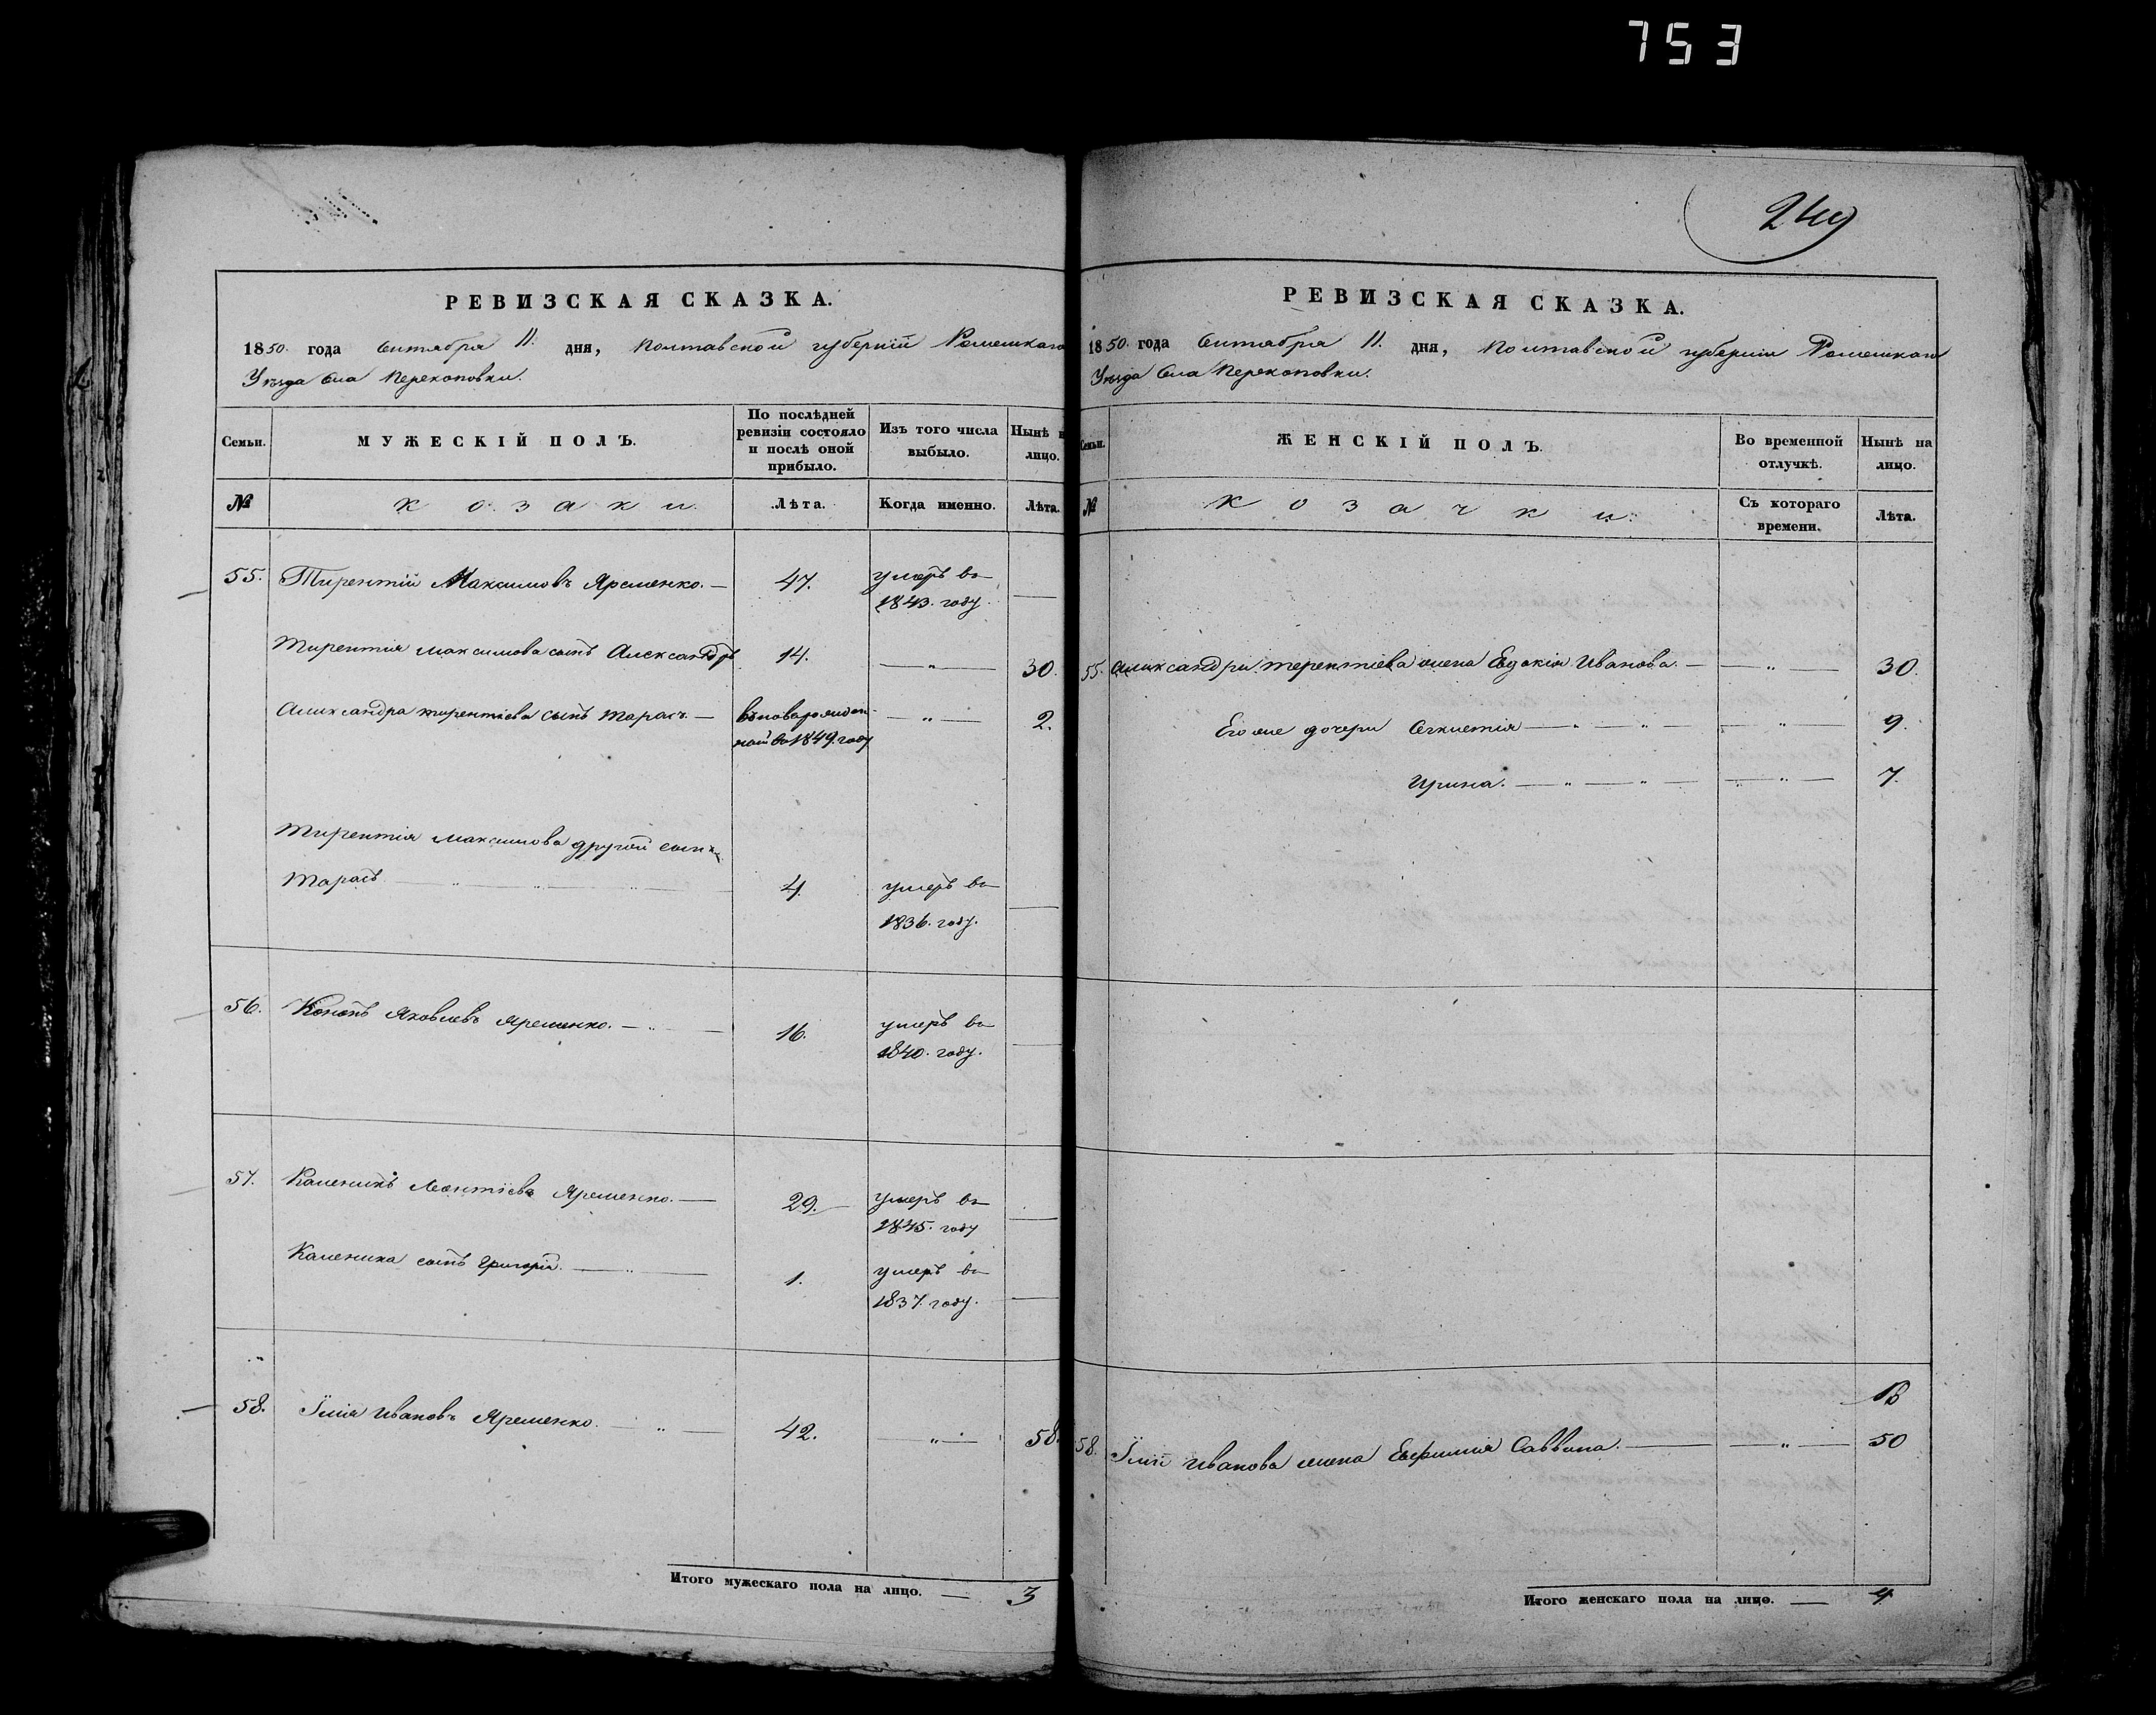 753
249
РЕВИЗСКАЯ СКАЗКА.
1850. года Сентября 11. дня, Полтавской губернии Роменскаго
Уезда Села Перекоповки.
Семьи.
МУЖЕСКІЙ ПОЛЪ.
По послѣдней ревизіи состояло и послѣ оной прибыло.
Изъ того числа выбыло.
Нынѣ на лицо.
№
Козаки.
Лѣта.
Когда именно.
Лѣта.
55. Тирентій Максимовъ Яременко. — 47. умеръ въ
1843. году.
Тирентія Максимова сынъ Александръ 14. — „ — 30.
Александра Тирентіева сынъ Тарасъ. — вновьрожден
ной въ 1849. году — „ — 2.
Тирентія Максимова другой сынъ
Тарасъ. 4. умеръ въ
1836. году.
56. Кононъ Яковлевъ Яременко. — „ — 16. умеръ въ
1840. году.
57. Каленикъ Леонтіевъ Яременко. — 29. умеръ въ
1845. году
Каленика сынъ Григорій. — „ — 1. умеръ въ
1837. году.
58. Илія Ивановъ Яременко. — „ — 42. — „ — 58.
Итого мужескаго пола на лицо. — 3
РЕВИЗСКАЯ СКАЗКА.
1850. года Сентября 11. дня, Полтавской губернии Роменскаго
Уезда Села Перекоповки.
Семьи.
ЖЕНСКІЙ ПОЛЪ.
Во временной отлучкѣ.
Нынѣ на лицо.
№
Козачки.
Съ котораго времени.
Лѣта.
55. Александры Терентіева жена Евдокія Иванова. — „ — 30.
Его же дочери — „ — 9.
Ирина. — „ — „ — 7.
58. Иліи Иванова жена Евфимія Саввина. — „ — 50
Итого женскаго пола на лицо. — 4